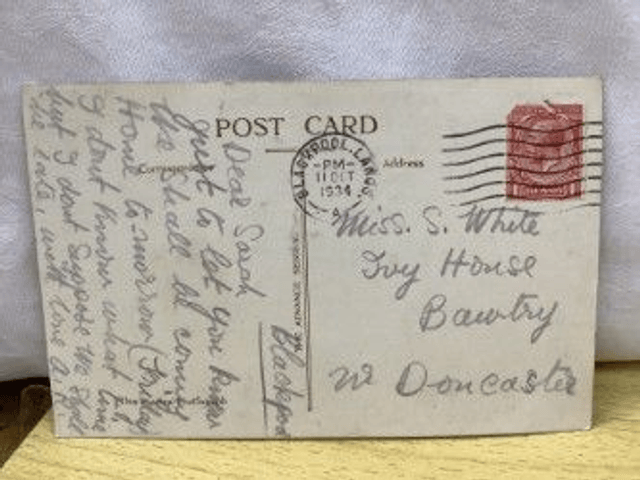 POST CARD
Address
BLACKPOOL. LANCS
-PM-
11 OCT
1934
A
Miss. S. White
Ivy House
Bawtry
Nr Doncaster
Blackpo
Dear Sarah
Just to let you know
We shall be coming
Home to-morrow (Friday)
I dont know what time
but I dont suppose we shall
be late, with love A.
THE ADVANCE SERIES